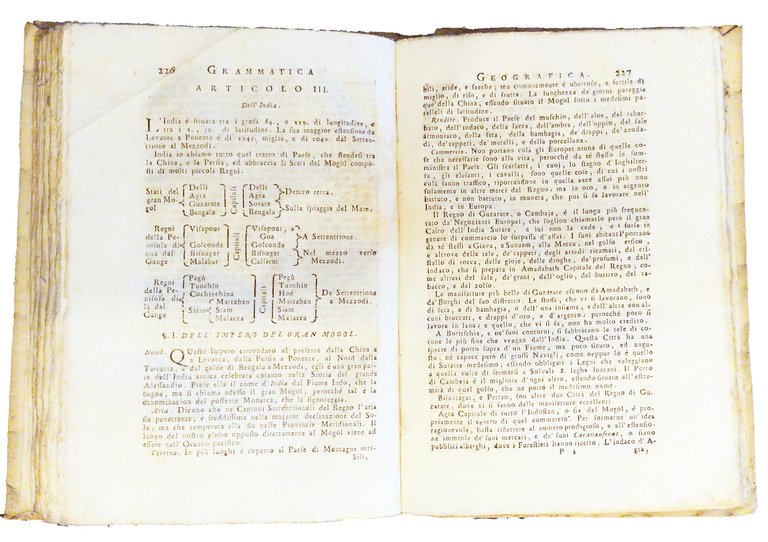 226 GRAMMATICA
ARTICOLO III.
Dell'India.
L'India è situata tra i gradi 84, e 129. di longitudine, e
tra i 2, 36. di latitudine. La sua maggior estensione da
Levante a Ponente è di 2245. miglia, e di 2040. dal Setten-
trione al Mezzodi.
India io chiamo tutto quel tratto di Paese, che stendesi tra
la China, e la Persia, ed abbraccia li Stati del Mogol compo-
sti di molti piccoli Regni.
Stati del gran Mo- gol { Delli Agra Guzarate Bengala } Capitali { Delli Agra Surate Bengala } Dentro terra. Sulla spiaggia del Mare.
Regni della Pe- nisola di quà dal Gange { Visapour Golconda Bisnagar Malabar } Capitali { Visapour, o Goa Golconda Bisnagar Callicut } A Settentrione. Nel mezzo verso Mezzodì.
Regni della Pe- nisola di là dal Gange { Pegù Tunchin Cochinchina Siam { Martaban Siam Malacca } Capitali { Pegù Tunchin Hoé Martaban Siam Malacca } Da Settentriona a Mezzodi.
§. I. DELL'IMPERO DEL GRAN MOGOL.
Nomi. Questo Impero circondato al presente dalla China a
a Levante, dalla Persia a Ponente, al Nord dalla
Tartaria, dal golfo di Bengala a Mezzodi, egli è una gran par-
te dell'India antica celebrata cotanto nella Storia del grande
Alessandro. Prese ella il nome d'India dal Fiume Indo, che la
bagna, ma si chiama adesso il gran Mogol; perocchè tal è la
dinominazion del possente Monarca, che la signoreggia.
Aria. Dicono che ne' Cantoni Settentrionali del Regno l'aria
sia penetrante, e freddissima nella maggior declinazione del So-
le; ma che temperata ella sia nelle Provincie Meridionali. Il
luogo del nostro globo opposto direttamente al Mogol viene ad
essere nell'Oceano pacifico.
Terreno. In più luoghi è coperto il Paese di Montagne orri-
bili,
GEOGRAFICA. 227
bili, aride, e secche; ma comunemente è ubertoso, e fertile di
miglio, di riso, e di frutta. La lunghezza de' giorni pareggia
que' della China, essendo situato il Mogol sotto i medesimi pa-
ralleli di latitudine.
Rendite. Produce il Paese del muschio, dell'aloe, del rabar-
baro, dell'indaco, della lacca, dell'ambra, dell'oppio, del sale
armoniaco, della seta, della bambagia, de' drappi, de' zenda-
di, de' tappeti, de' metalli, e della porcellana.
Commercio. Non portano colà gli Europei niuna di quelle co-
se che necessarie sono alla vita, perocchè da sé stesso le som-
ministra il Paese. Gli scarlatti, i cuoj, lo stagno d'Inghilter-
ra, gli elefanti, i cavalli, sono quelle cose, di cui i nostri
colà fanno traffico, riportandone in quella vece assai più non
solamente in altre merci del Regno; ma in oro, e in argento
battuto, e non battuto, in moneta, che poi si fa lavorare nell'
India, e in Europa.
Il Regno di Guzarate, o Cambaja, è il luogo più frequen-
tato da' Negozianti Europei, che soglion chiamarlo però il gran
Cairo dell'India. Surate, a lui non la cede, e i suoi abitanti portano
genere di commercio lo sorpassa d'assai. I
da sé stessi a Giava, a Sunaam, alla Mecca, nel golfo ersico,
e altrove delle tele, de' tappeti, degli arredi ricamati, del cri-
stallo di rocca, delle gioje, delle droghe, de' profumi, e dell'
indaco, che si prepara in Amadabath Capitale del Regno; co-
me altresì del sale, de' grani, dell'oglio, del butirro, del ta-
bacco, e del zolfo.
Le manifatture più belle di Guzarate escono da Amadabath, e
da' Borghi del suo distretto. Le stoffe, che vi si lavorano, sono
di seta, e di bambagia, o dell'una insieme, e dell'altra con al-
cuni broccati, e drappi d'oro, e d'argento; perocchè poco si
lavora in lana; e quello, che vi si fa, non ha molto credito.
A Boritschia, e ne' suoi contorni, si fabbricano le tele di co-
tone le più fine che vengan dall'India. Questa Città ha una
specie di porto sopra d'un Fiume, ma poco sicuro, ed angu-
sto; né capace però di grossi Naviglj, come neppur lo è quello
di Suratte medesimo; essendo obbligati i Legni che veleggiano
a quella volta di fermarsi a Solvalt 8. leghe lontani. Il Porto
di Cambeja è il migliore d'ogni altro, essendo situato all'estre-
mità di quel golfo, che ne porto il medesimo nome.
Bilantagat, e Pettan, son altre due Città del Regno di Gu-
zarate, dove vi si fanno delle manifatture eccellenti.
Agra Capitale di tutto l'Indostan, o sia del Mogol, è pro-
priamente il centro di quel commercio. Per formarne un'idea
ragionevole, basta riflettere al numero prodigioso, e all'estensio-
ne immensa de' suoi mercati, e de' suoi Caravanserai, o siano
pubblici alberghi, dove i Forestieri hanno ricetto. L'indaco d'A-
P 2 gra,